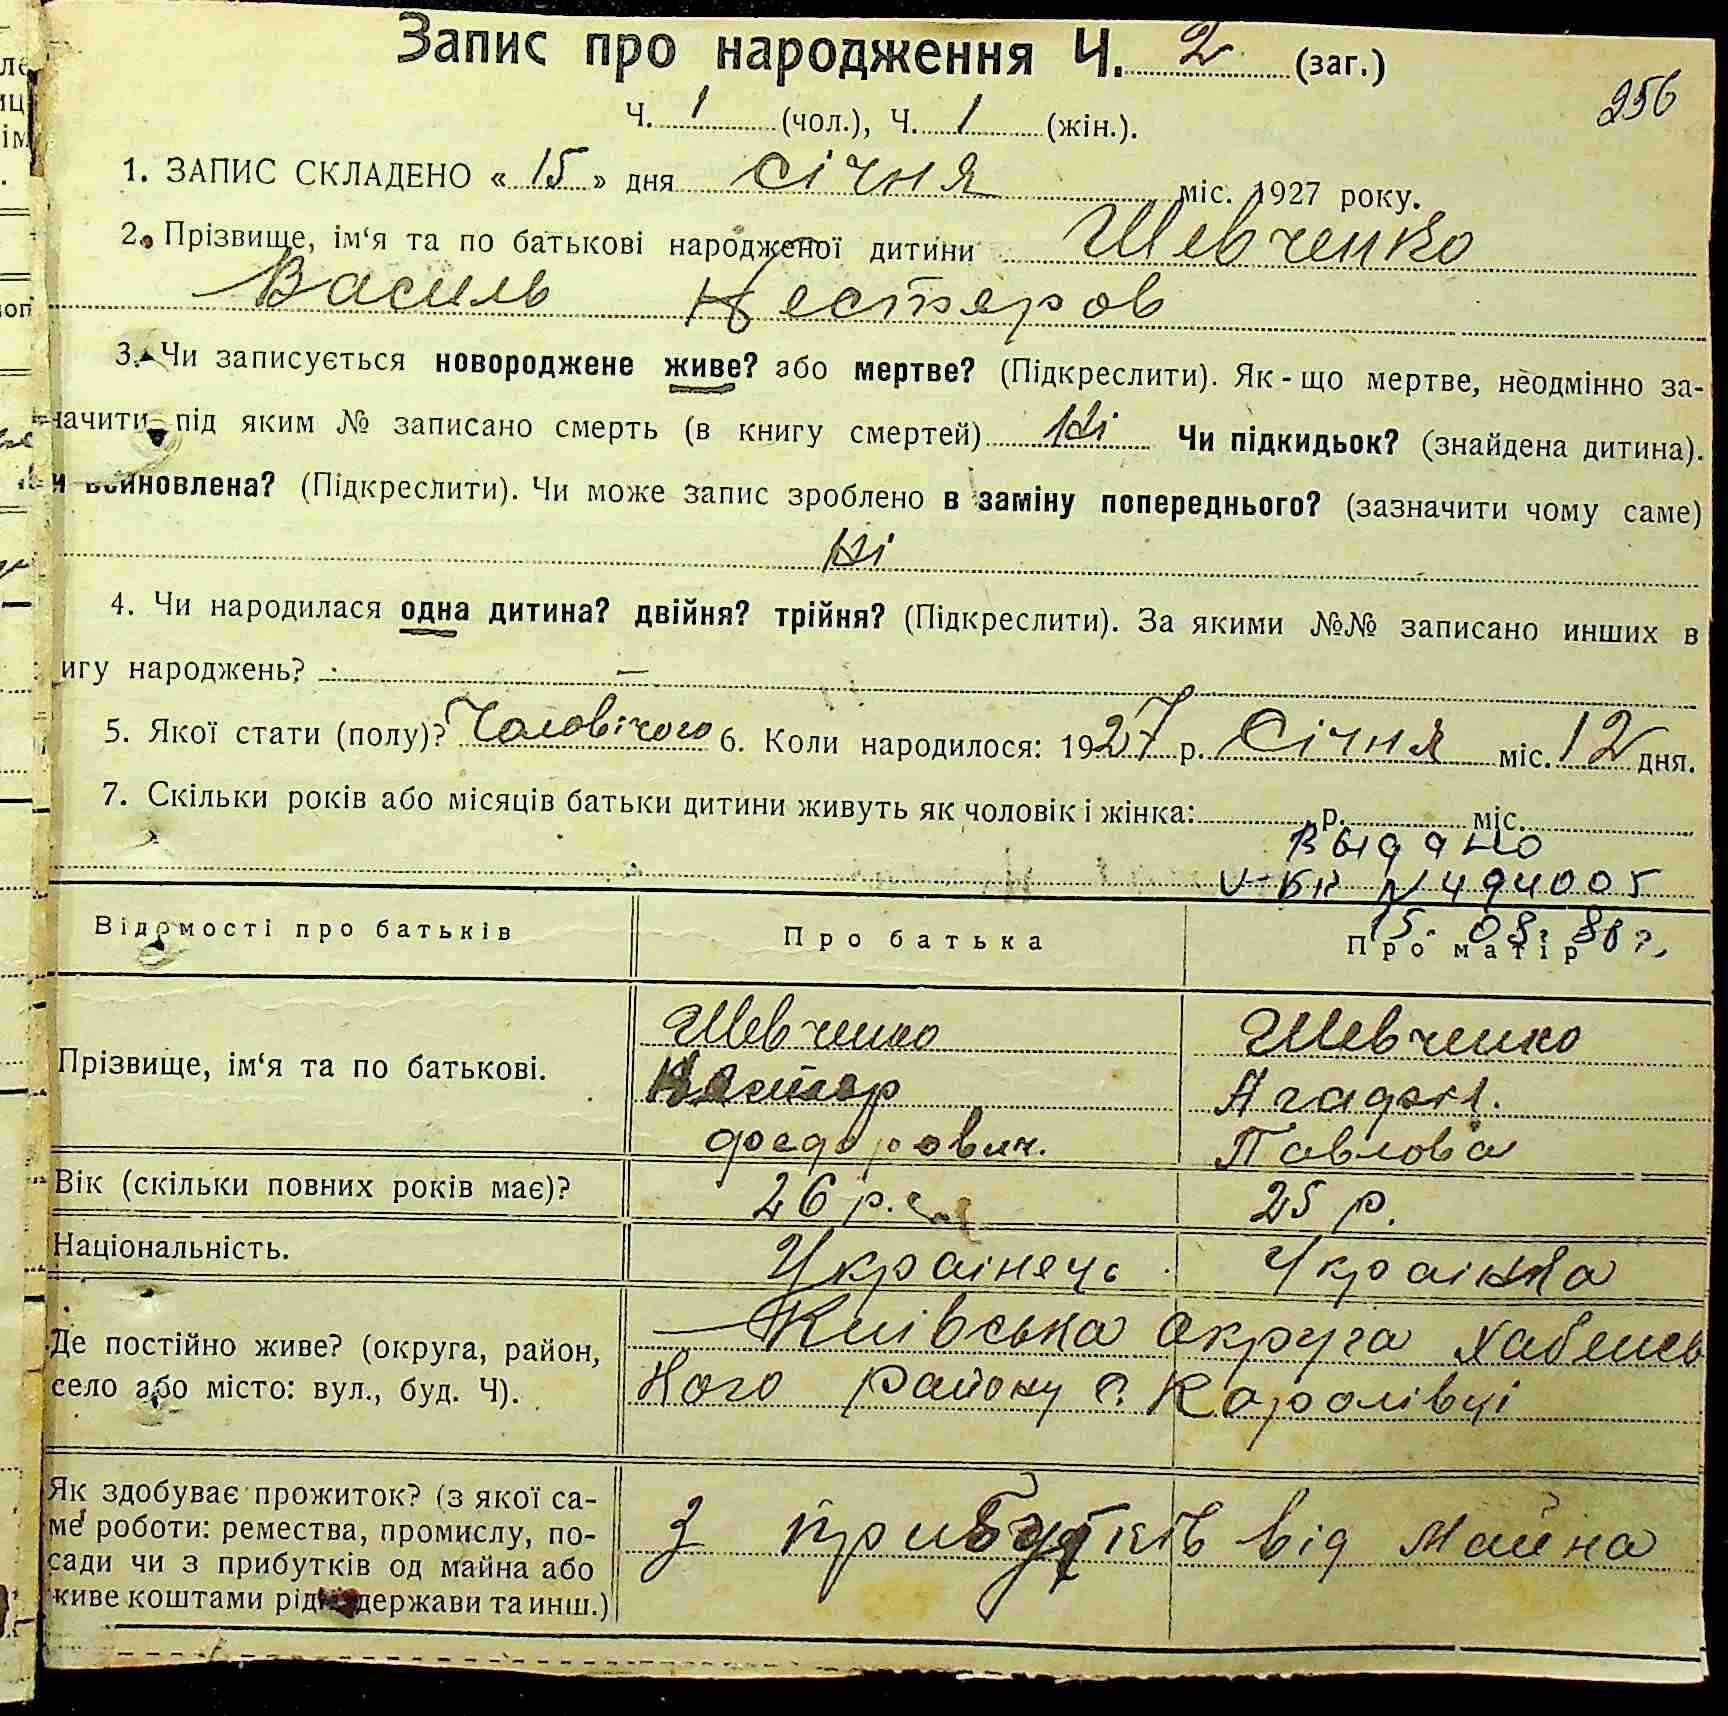 Запис про народження Ч. 2 (заг.)
256
Ч. 1 (чол.), Ч. 1 (жін.).
1. ЗАПИС СКЛАДЕНО « 15 » дня січня міс. 1927 року.
2. Прізвище, ім‘я та по батькові народженої дитини Шевченко
Василь Нестеров
3. Чи записується новороджене живе? або мертве? (Підкреслити). Як-що мертве, неодмінно за-
начити під яким № записано смерть (в книгу смертей) Ні Чи підкидьок? (знайдена дитина).
и всиновлена? (Підкреслити). Чи може запис зроблено в заміну попереднього? (зазначити чому саме)
Ні
4. Чи народилася одна дитина? двійня? трійня? (Підкреслити). За якими №№ записано инших в
игу народжень? —
5. Якої стати (полу)? Чоловічого 6. Коли народилося: 1927 р. Січня міс. 12 дня.
7. Скільки років або місяців батьки дитини живуть як чоловік і жінка: р. міс.
Выдано
V-БК N 494005
15. 08. 88 г.
Відомості про батьків Про батька Про матір
Прізвище, ім‘я та по батькові.
Шевченко Шевченко
Нестер Агафія.
Федорович. Павлова
Вік (скільки повних років має)? 26 р. 25 р.
Національність. Украінець Украінка
Де постійно живе? (округа, район,
село або місто: вул., буд. Ч).
Київська округа Хабенсь
кого району с. Каролівці
Як здобуває прожиток? (з якої са-
ме роботи: ремества, промислу, по-
сади чи з прибутків од майна або
живе коштами рідні держави та инш.)
З прибутків від майна